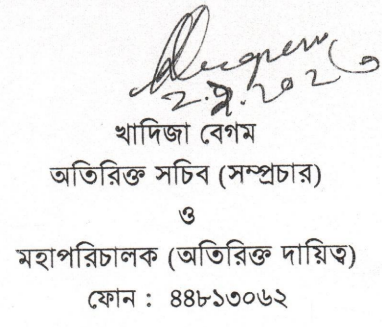 খাদিজা বেগম
অতিরিক্ত সচিব (সম্প্রচার)
ও
মহাপরিচালক (অতিরিক্ত দায়িত্ব)
ফোন : ৪৪৮১৩০৬২